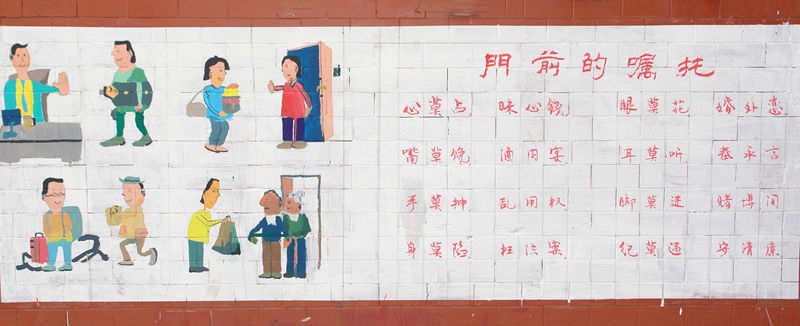 門前的嘱托
心莫占 昧心钱 眼莫花 婚外恋
嘴莫馋 酒肉宴 耳莫听 奉承言
手莫伸 乱用权 脚莫进 赌博间
身莫陷 枉法案 纪莫违 守清廉